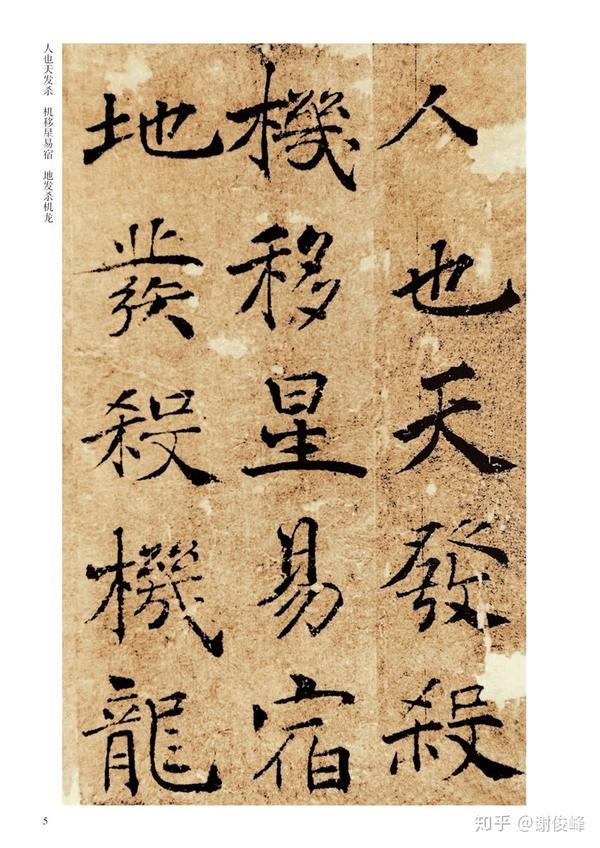 人也天发杀 机移星易宿 地发杀机龙
人也天發殺
機移星易宿
地發殺機龍
5
知乎 @谢俊峰